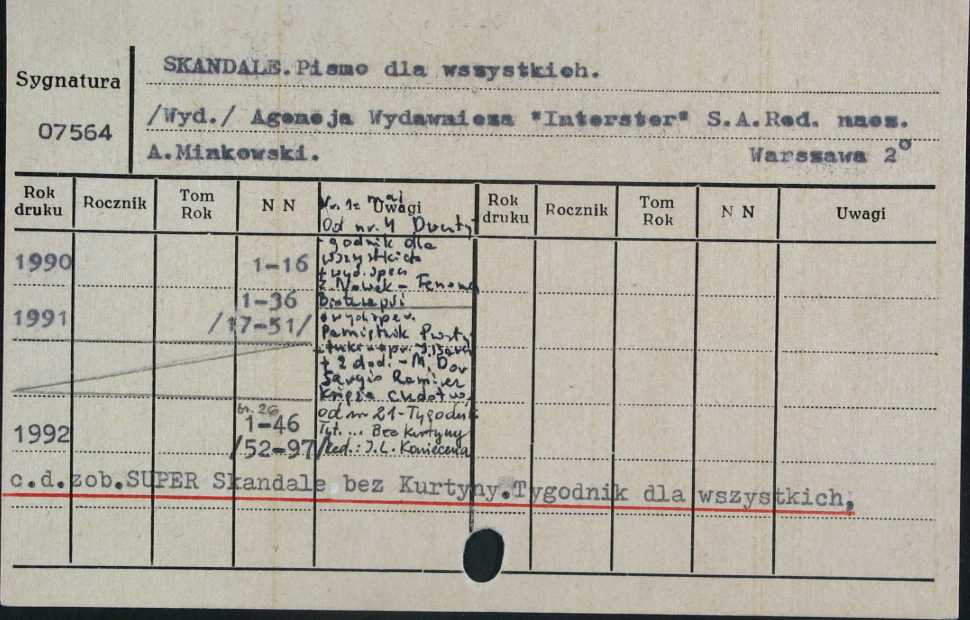 Sygnatura
07564
SKANDALE.Pismo dla wszystkich.
/Wyd./ Agencja Wydawnicza "Interster" S.A.Red. nacz.
A.Minkowski. Warszawa 2°
Rok druku Rocznik Tom Rok N N Uwagi Rok druku Rocznik Tom Rok N N Uwagi
Nr. 1: maj
Od nr. 4 Dwuty-
godnik dla
wszystkich
1990 1-16
+ wyd. spec.
Z. Nowak - Fenomen
Bioterapii
1991 1-36
/17-51/
+ wyd. spec.
Pamiętnik
+ 2 dod. - M. Dor
Sergio Ramirez
Księga cudotw.
1992 br. 26
1-46
/52-97/
od nr 21-Tygodnik
Tyt. ... Bez Kurtyny
Red.: J.L.
c.d.zob.SUPER Skandale bez Kurtyny.Tygodnik dla wszystkich,